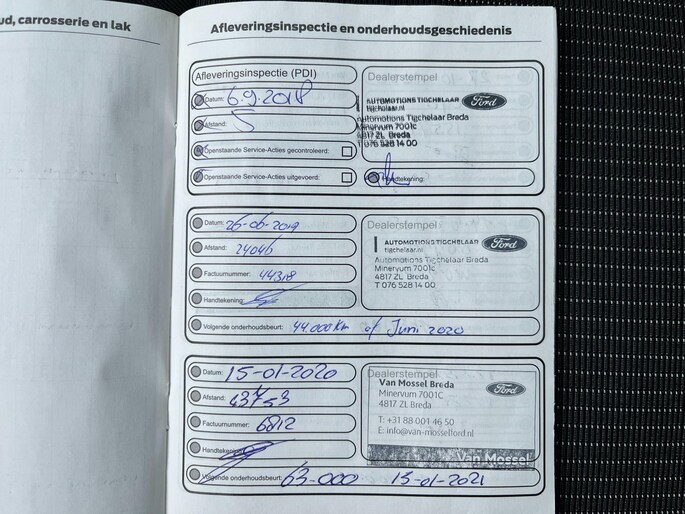 ud, carrosserie en lak
Afleveringsinspectie en onderhoudsgeschiedenis
Afleveringsinspectie (PDI)
Datum: 6.9.2018
Afstand: 5
Openstaande Service-Acties gecontroleerd:
Openstaande Service-Acties uitgevoerd:
Dealerstempel
AUTOMOTIONS TIGCHELAAR
tigchelaar.nl
Ford
Automotions Tigchelaar Breda
Minervum 7001c
4817 ZL Breda
T 076 528 14 00
Handtekening:
Datum: 26-06-2019
Afstand: 24046
Factuurnummer: 44318
Handtekening:
Volgende onderhoudsbeurt: 44.000 Km of Juni 2020
Dealerstempel
AUTOMOTIONS TIGCHELAAR
tigchelaar.nl
Ford
Automotions Tigchelaar Breda
Minervum 7001c
4817 ZL Breda
T 076 528 14 00
Datum: 15-01-2020
Afstand:
Factuurnummer: 6812
Handtekening:
Volgende onderhoudsbeurt: 63-000 15-01-2021
Dealerstempel
Van Mossel Breda
Minervum 7001C
4817 ZL Breda
Ford
T: +31 88 001 46 50
E: info@van-mosselford.nl
Van Mossel